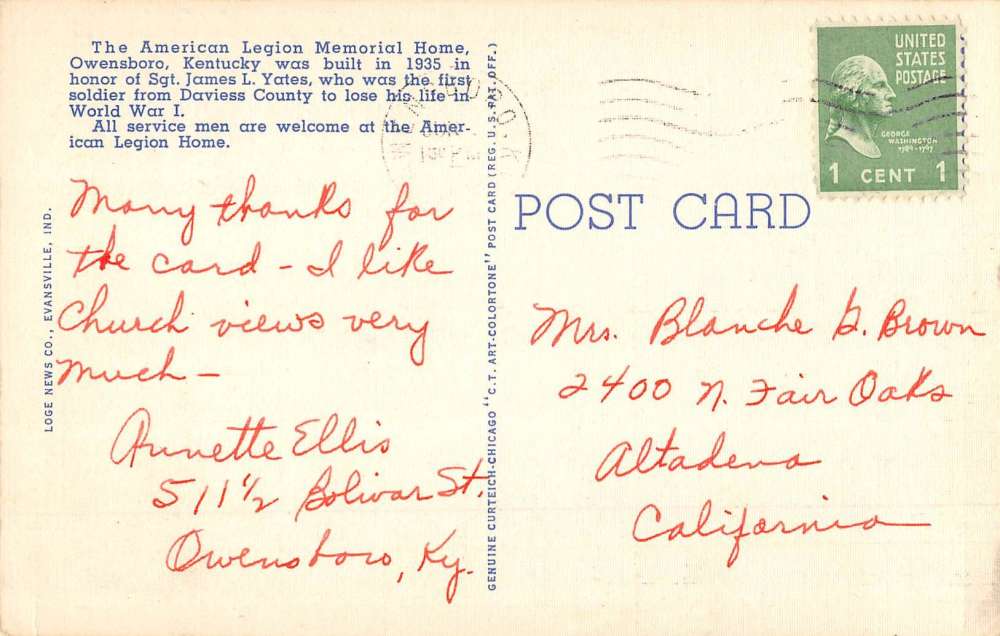 The American Legion Memorial Home,
Owensboro, Kentucky was built in 1935 in
honor of Sgt. James L. Yates, who was the first
soldier from Daviess County to lose his life in
World War I.
All service men are welcome at the Amer-
ican Legion Home.
Many thanks for
the card - I like
Church views very
much -
Annette Ellis
511 1/2 Bolivar St.
Owensboro, Ky.
LOGE NEWS CO., EVANSVILLE, IND.
GENUINE CURTEICH-CHICAGO "C.T. ART-COLORTONE" POST CARD (REG. U.S. PAT. OFF.)
POST CARD
UNITED
STATES
POSTAGE
GEORGE
WASHINGTON
1789-1797
1 CENT 1
Mrs. Blanche G. Brown
2400 N. Fair Oaks
Altadena
California